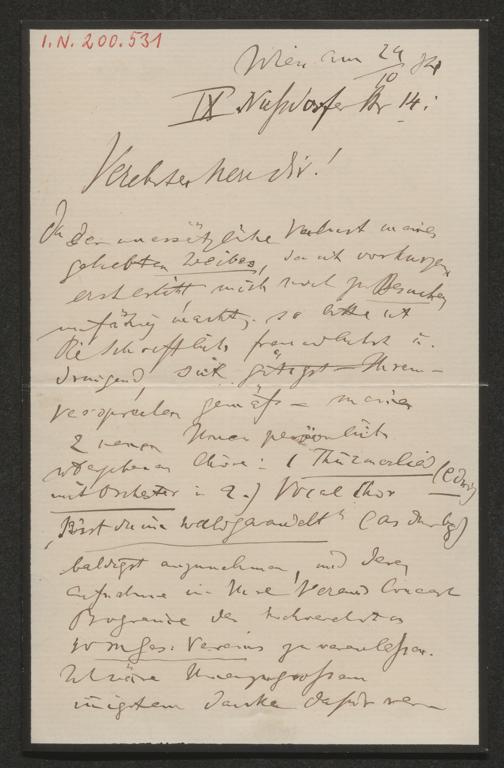 I.N. 200.531
Wien am 24/10 84
IX Nußdorfer Str 14.
Verehrter Herr Dir.!
Da der unersätzliche Verlust meines
geliebten Weibes, den ich vor kurzem
erst erlitt, mich noch zu Besuchen
unfähig macht, so bitte ich
Sie schriftlich freundlichst u.
dringend, sich gütigst Ihrem
Versprechen gemäß meiner
2 neuen Ihnen persönlich
Chöre: 1 Thürmerlied
mit Orchester u 2.) Vocal Chor
"Bist du im Wald gewandelt" (as dur
baldigst anzunehmen, und deren
Aufnahme in Ihre Vereins Concert
Programme des
Vereins zu veranlassen.
Ich wäre Ihnen zu grossem
innigstem Danke dafür